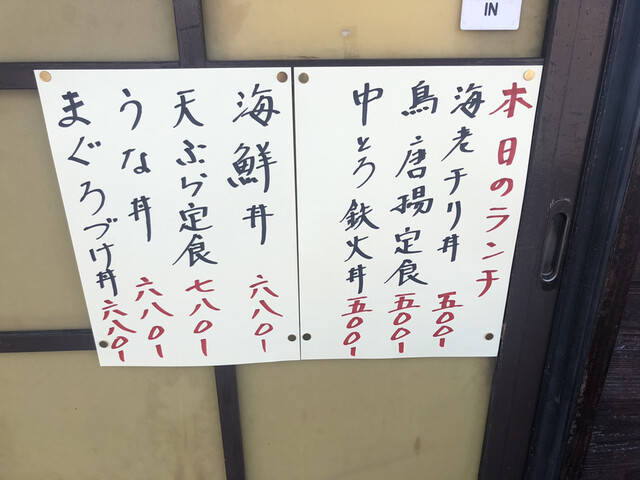 IN
本日のランチ
海老チリ丼 五〇〇ー
鳥唐揚定食 五〇〇ー
中とろ鉄火丼 五〇〇ー
海鮮丼 六八〇ー
天ぷら定食 七八〇ー
うな丼 六八〇ー
まぐろづけ丼 六八〇ー